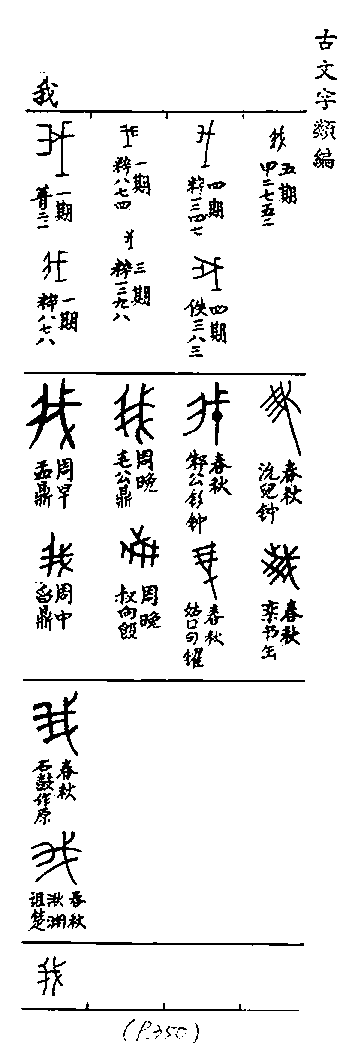 古文字類編
我
一期
菁二一
一期
粹八七八
一期
粹八七四
三期
粹一三九八
四期
粹一三四七
四期
佚三八三
五期
甲二七五二
周早
盂鼎
周中
曶鼎
周晚
毛公鼎
周晚
叔向𣪘
春秋
邾公釛钟
春秋
姑口句鑃
春秋
沇兒钟
春秋
栾书缶
春秋
石鼓作原
春秋
湫渊
诅楚
我
(P.350)